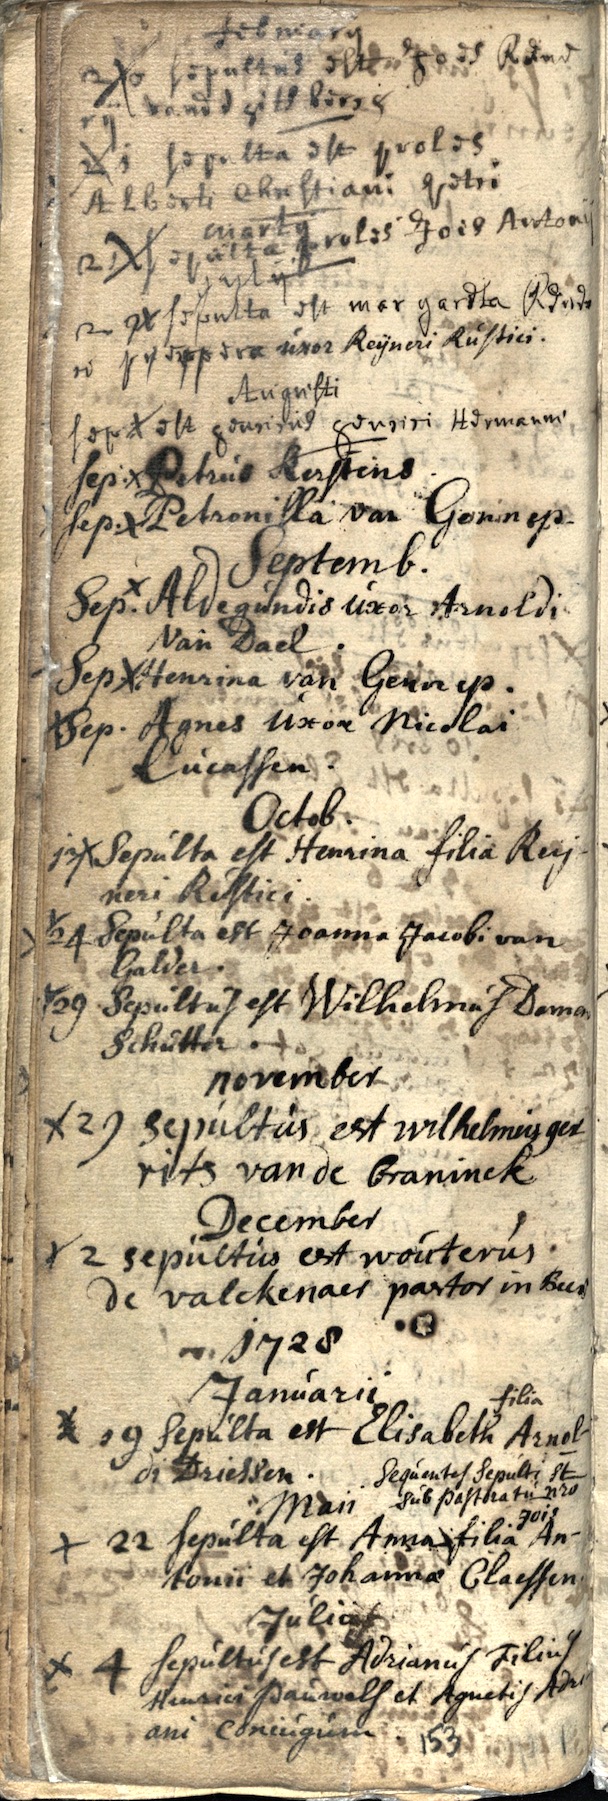 february
sepultus est
vande
sepulta est proles
Alberti Christiani Petri
martij
21 sepulta proles Jois Antonij
julij
sepulta est margareta
uxor Reijneri Rustici.
Augusti
sep. est Henrici Hermanni
sep. Petrus Kerstens
sep. Petronilla van Gennep
Septemb.
Sep. Aldegundis uxor Arnoldi
Van Dael.
Sep. Henrina van Gennep.
Sep. Agnes uxor Nicolai
Lucassen.
Octob.
Sepulta est Henrina filia Reij-
neri Rustici.
24 Sepulta est Joanna Jacobi van
Galder.
29 Sepultus est Wilhelmus
Schutter.
november
sepultus est wilhelmus ger
rits van de braninck
December
2 sepultus est wouterus
de valckenaer pastor in
1728
Januarii
filia
19 Sepulta est Elisabeth Arnol-
di Driessen.
Sequentes Sepulti st
sub pastoratu nro
Maii
Jois
22 sepulta est Anna filia An-
tonii et Johannæ Claessen
Julii
4 sepultus est Adrianus filius
Henrici Pauwels et Agnetis Adri
ani coniugum.
153